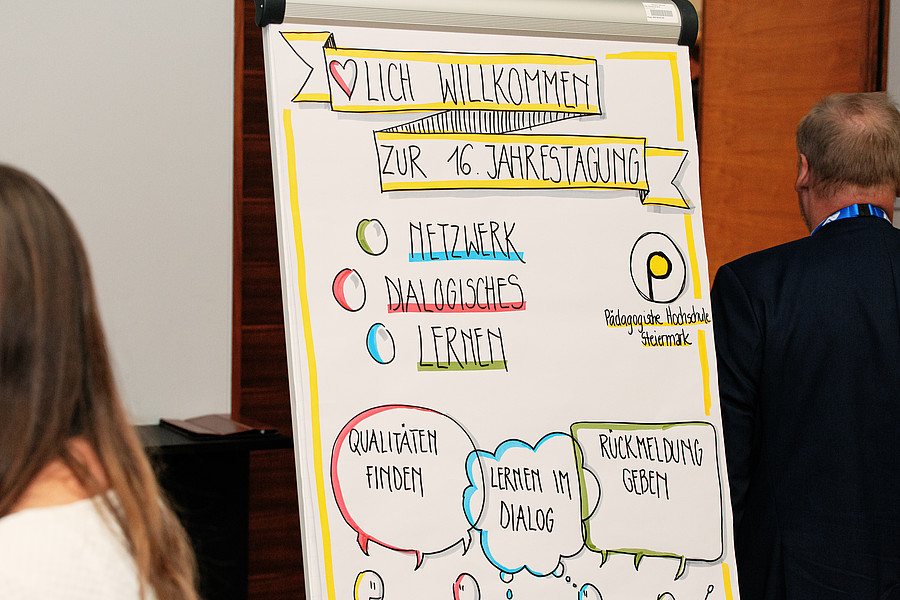 ♡LICH WILLKOMMEN
ZUR 16. JAHRESTAGUNG
NETZWERK
DIALOGISCHES
LERNEN
p
Pädagogische Hochschule
Steiermark
QUALITÄTEN
FINDEN
LERNEN IM
DIALOG
RÜCKMELDUNG
GEBEN